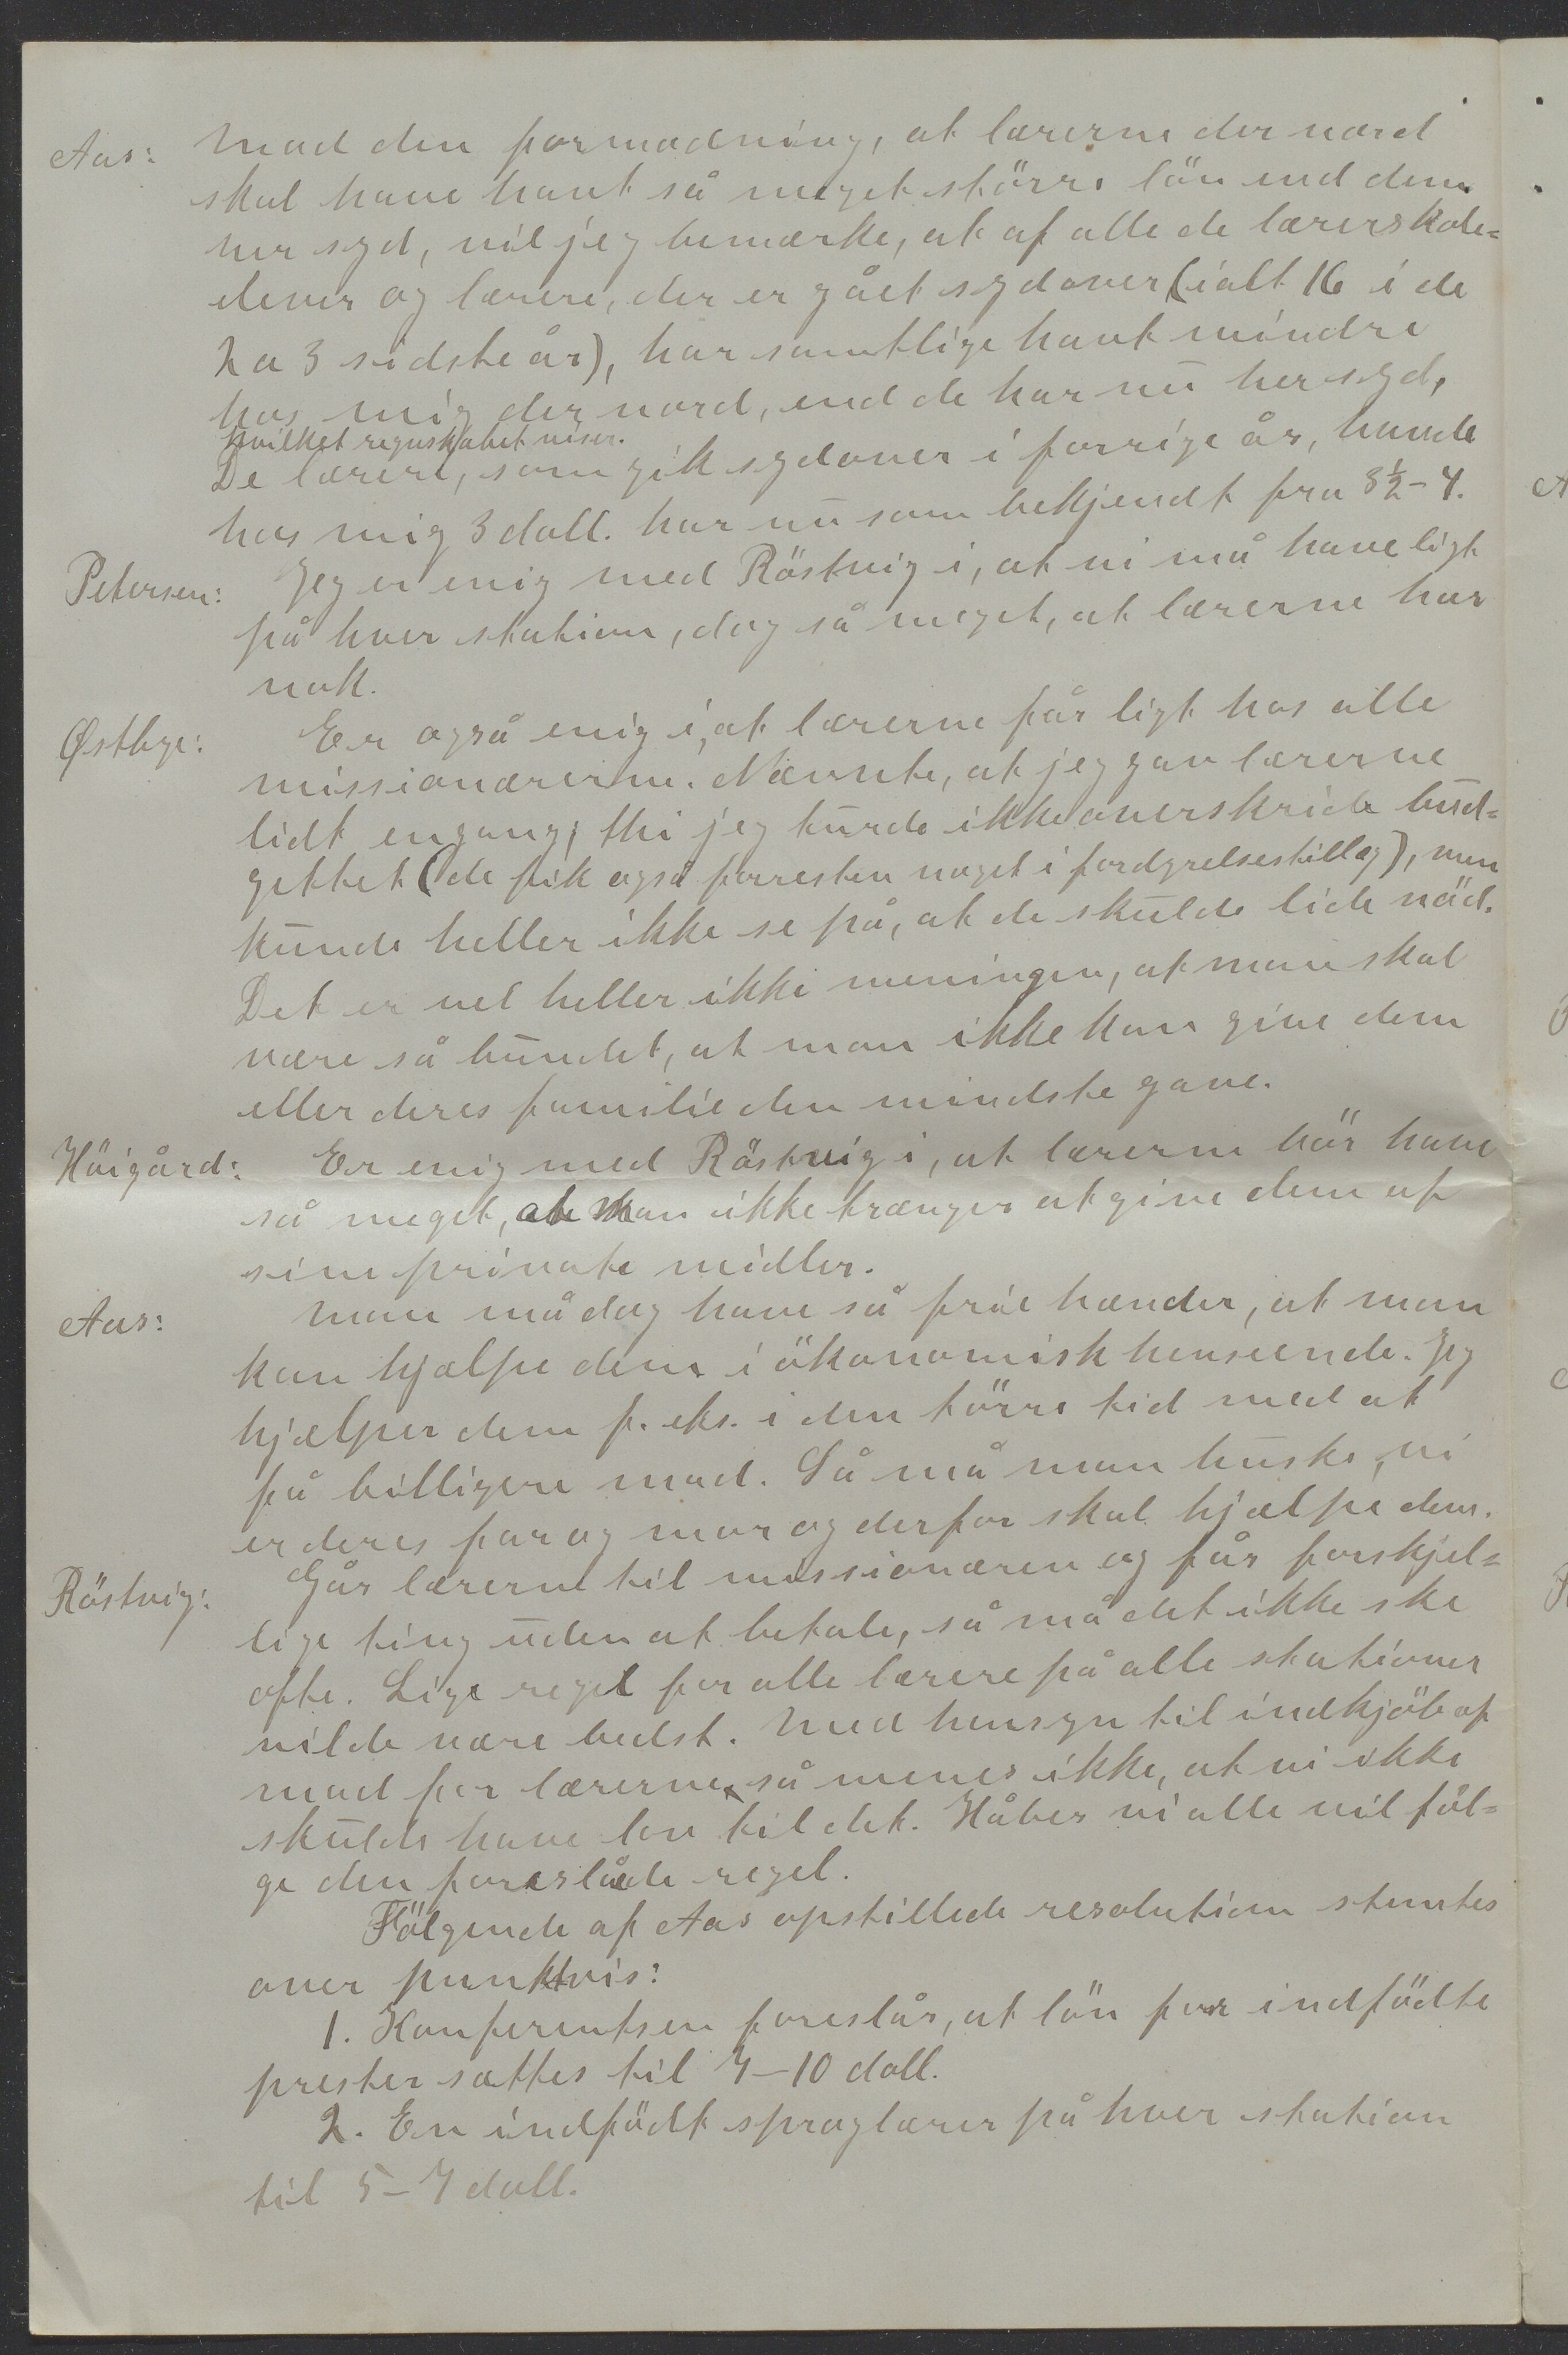 Aas: Mod den formodning, at lærerne der nord
skal have havt så meget större lön end dem
her syd, vil jeg bemærke, at af alle de lærerskole=
elever og lærere, der er gået sydover (ialt 16 i de
2 a 3 sidste år), har samtlige havt mindre
hos mig der nord, end de har nu her syd,
hvilket regnskabet viser.
De lærere, som gik sydover i forrige år, havde
hos mig 3 doll. har nu som bekjendt fra 3½-4.
Petersen: Jeg er enig med Röstvig i, at vi må have ligt
på hver station, dog så meget, at lærerne har
nok.
Østbye: Er også enig i, at lærerne får ligt hos alle
missionærerne. Nævnte, at jeg gav lærerne
lidt engang; thi jeg turde ikke overskride bud=
gettet (de fik også forresten noget i fordyrelsestillæg), men
kunde heller ikke se på, at de skulde lide nöd.
Det er vel heller ikke meningen, at man skal
være så bundet, at man ikke kan give dem
eller deres familie den mindste gave.
Höigård: Er enig med Röstvig i, at lærerne bör have
så meget, at man ikke trænger at give dem af
sine private midler.
Aas: Man må dog have så frie hænder, at man
kan hjælpe dem i ökonomisk henseende. Jeg
hjælper dem f. eks. i den törre tid med at
få billigere mad. Så må man huske, vi
er deres far og mor og derfor skal hjælpe dem.
Röstvig: Går lærerne til missionæren og får forskjel=
lige ting uden at betale, så må det ikke ske
ofte. Lige regel for alle lærere på alle stationer
vilde være bedst. Med hensyn til indkjöb af
mad for lærerne, så menes ikke, at vi ikke
skulde have lov til det. Håber vi alle vil föl=
ge den foreslåede regel.
Fölgende af Aas opstillede resolution stemtes
over punktvis:
1. Konferentsen foreslår, at lön for indfödte
prester sættes til 7-10 doll.
2. En indfödt sproglærer på hver station
til 5-7 doll.